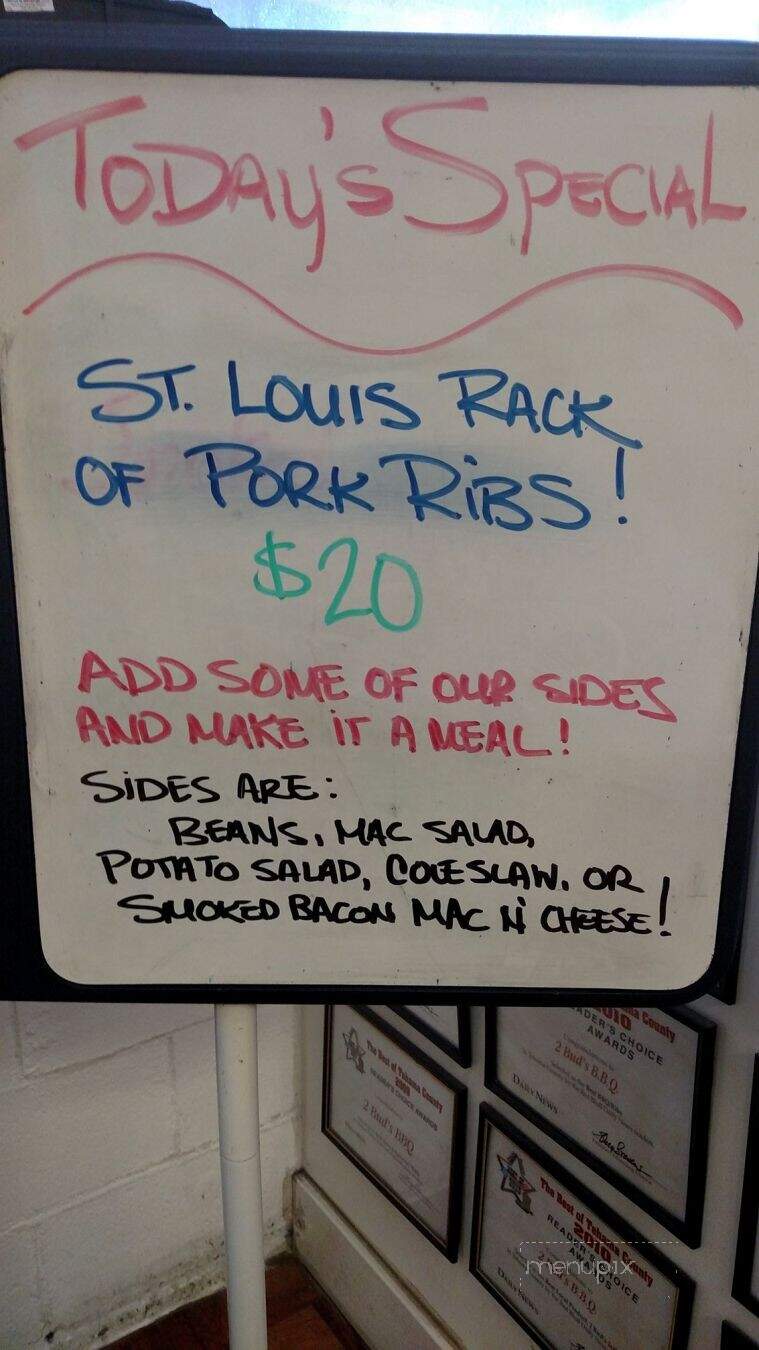 TODAY'S SPECIAL
ST. LOUIS RACK
OF PORK RIBS!
$20
ADD SOME OF OUR SIDES
AND MAKE IT A MEAL!
SIDES ARE:
BEANS, MAC SALAD,
POTATO SALAD, COLESLAW, OR
SMOKED BACON MAC N' CHEESE!
The Best of Tehama County
2009
READER'S CHOICE AWARDS
2 Bud's BBQ
County
2010
READER'S CHOICE
AWARDS
2 Bud's B.B.Q.
DAILY NEWS
The Best of Tehama County
2010
READER'S CHOICE
AWARDS
2 Bud's B.B.Q.
DAILY NEWS
menupix